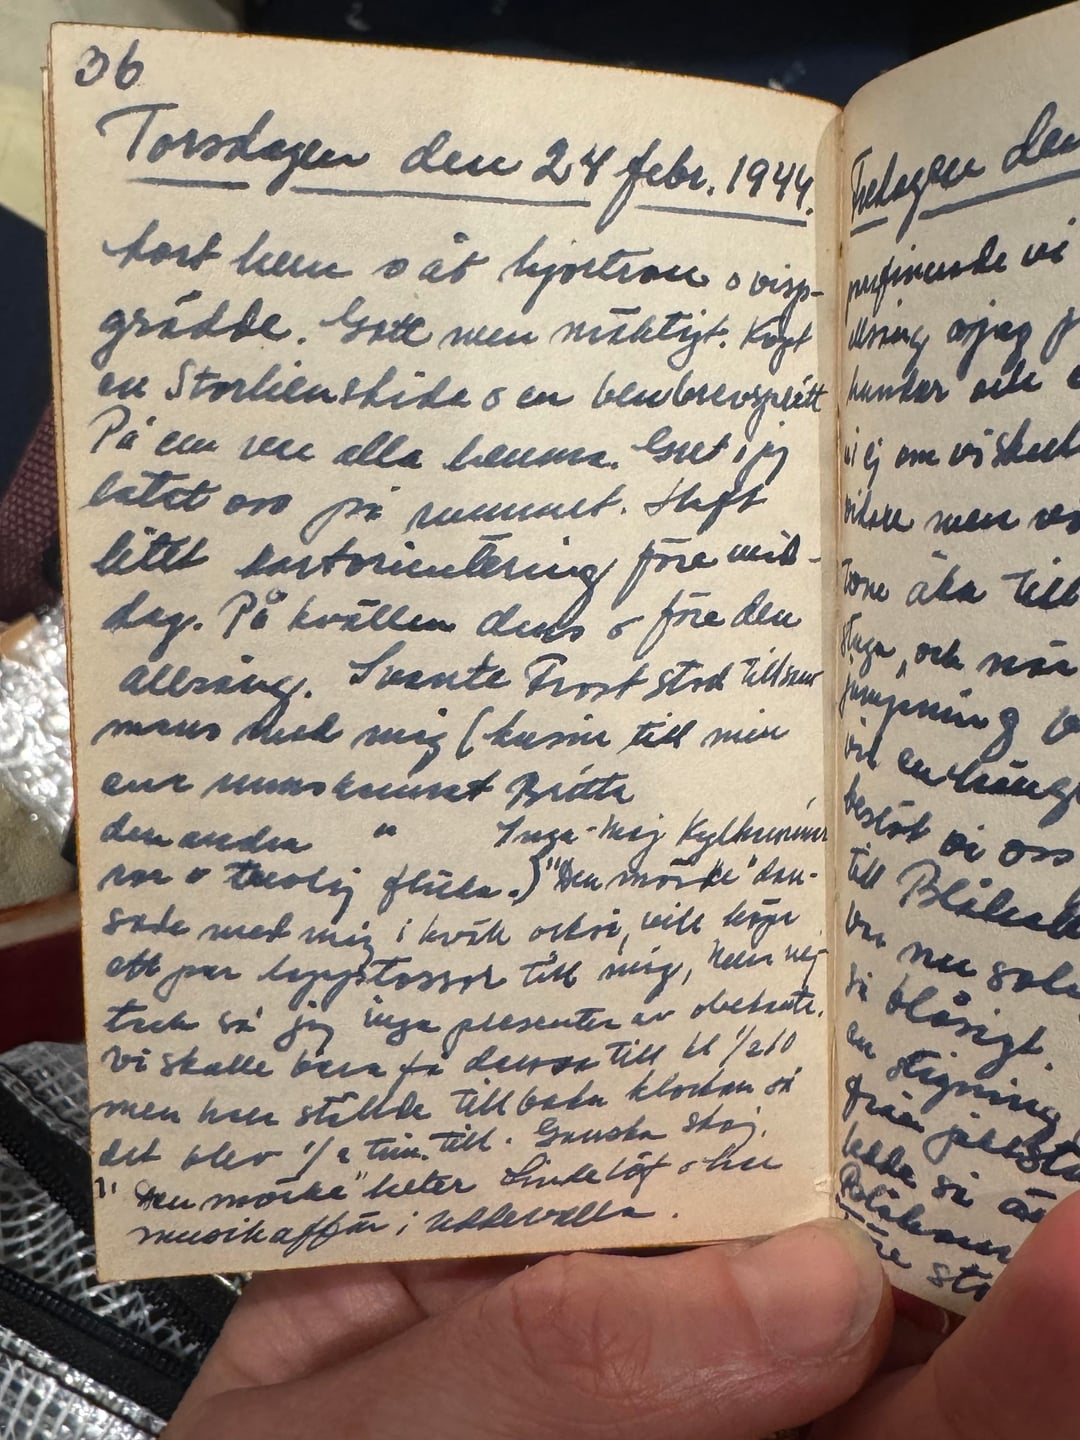 36
Torsdagen den 24 febr. 1944.
kort hem o åt hjortron o visp-
grädde. Gott men mäktigt. Köpt
en Storlienskida o en
På em var alla hemma. Gret o jag
låtit oss på rummet. Haft
litet kartorientering före mid-
dag. På kvällen dans o före den
allsång. Svante Frost stod tillsam
mans med mig (kusin till min
ena rumskamrat Britta
den andra " Inga-Maj
rar o trevlig flicka.) "Den mörke" dan-
sade med mig i kväll också, vill köpa
ett par lapptossor till mig, men nej
tack sa' jag inga presenter av obekanta.
vi skulle bara få dansa till kl 1/2 10
men han ställde tillbaka klockan så
det blev 1/2 tim. till. Ganska stoj.
"Den mörke" heter Lindelöf o har
musikaffär i Uddevalla.
Fredagen den
vi
o jag
och
vi ej om vi skul
men
åka till
stuga, och när
jumpning
en häng
beslöt vi oss
till
nu sol
så blåsigt.
en stigning
från
ledde så
sto